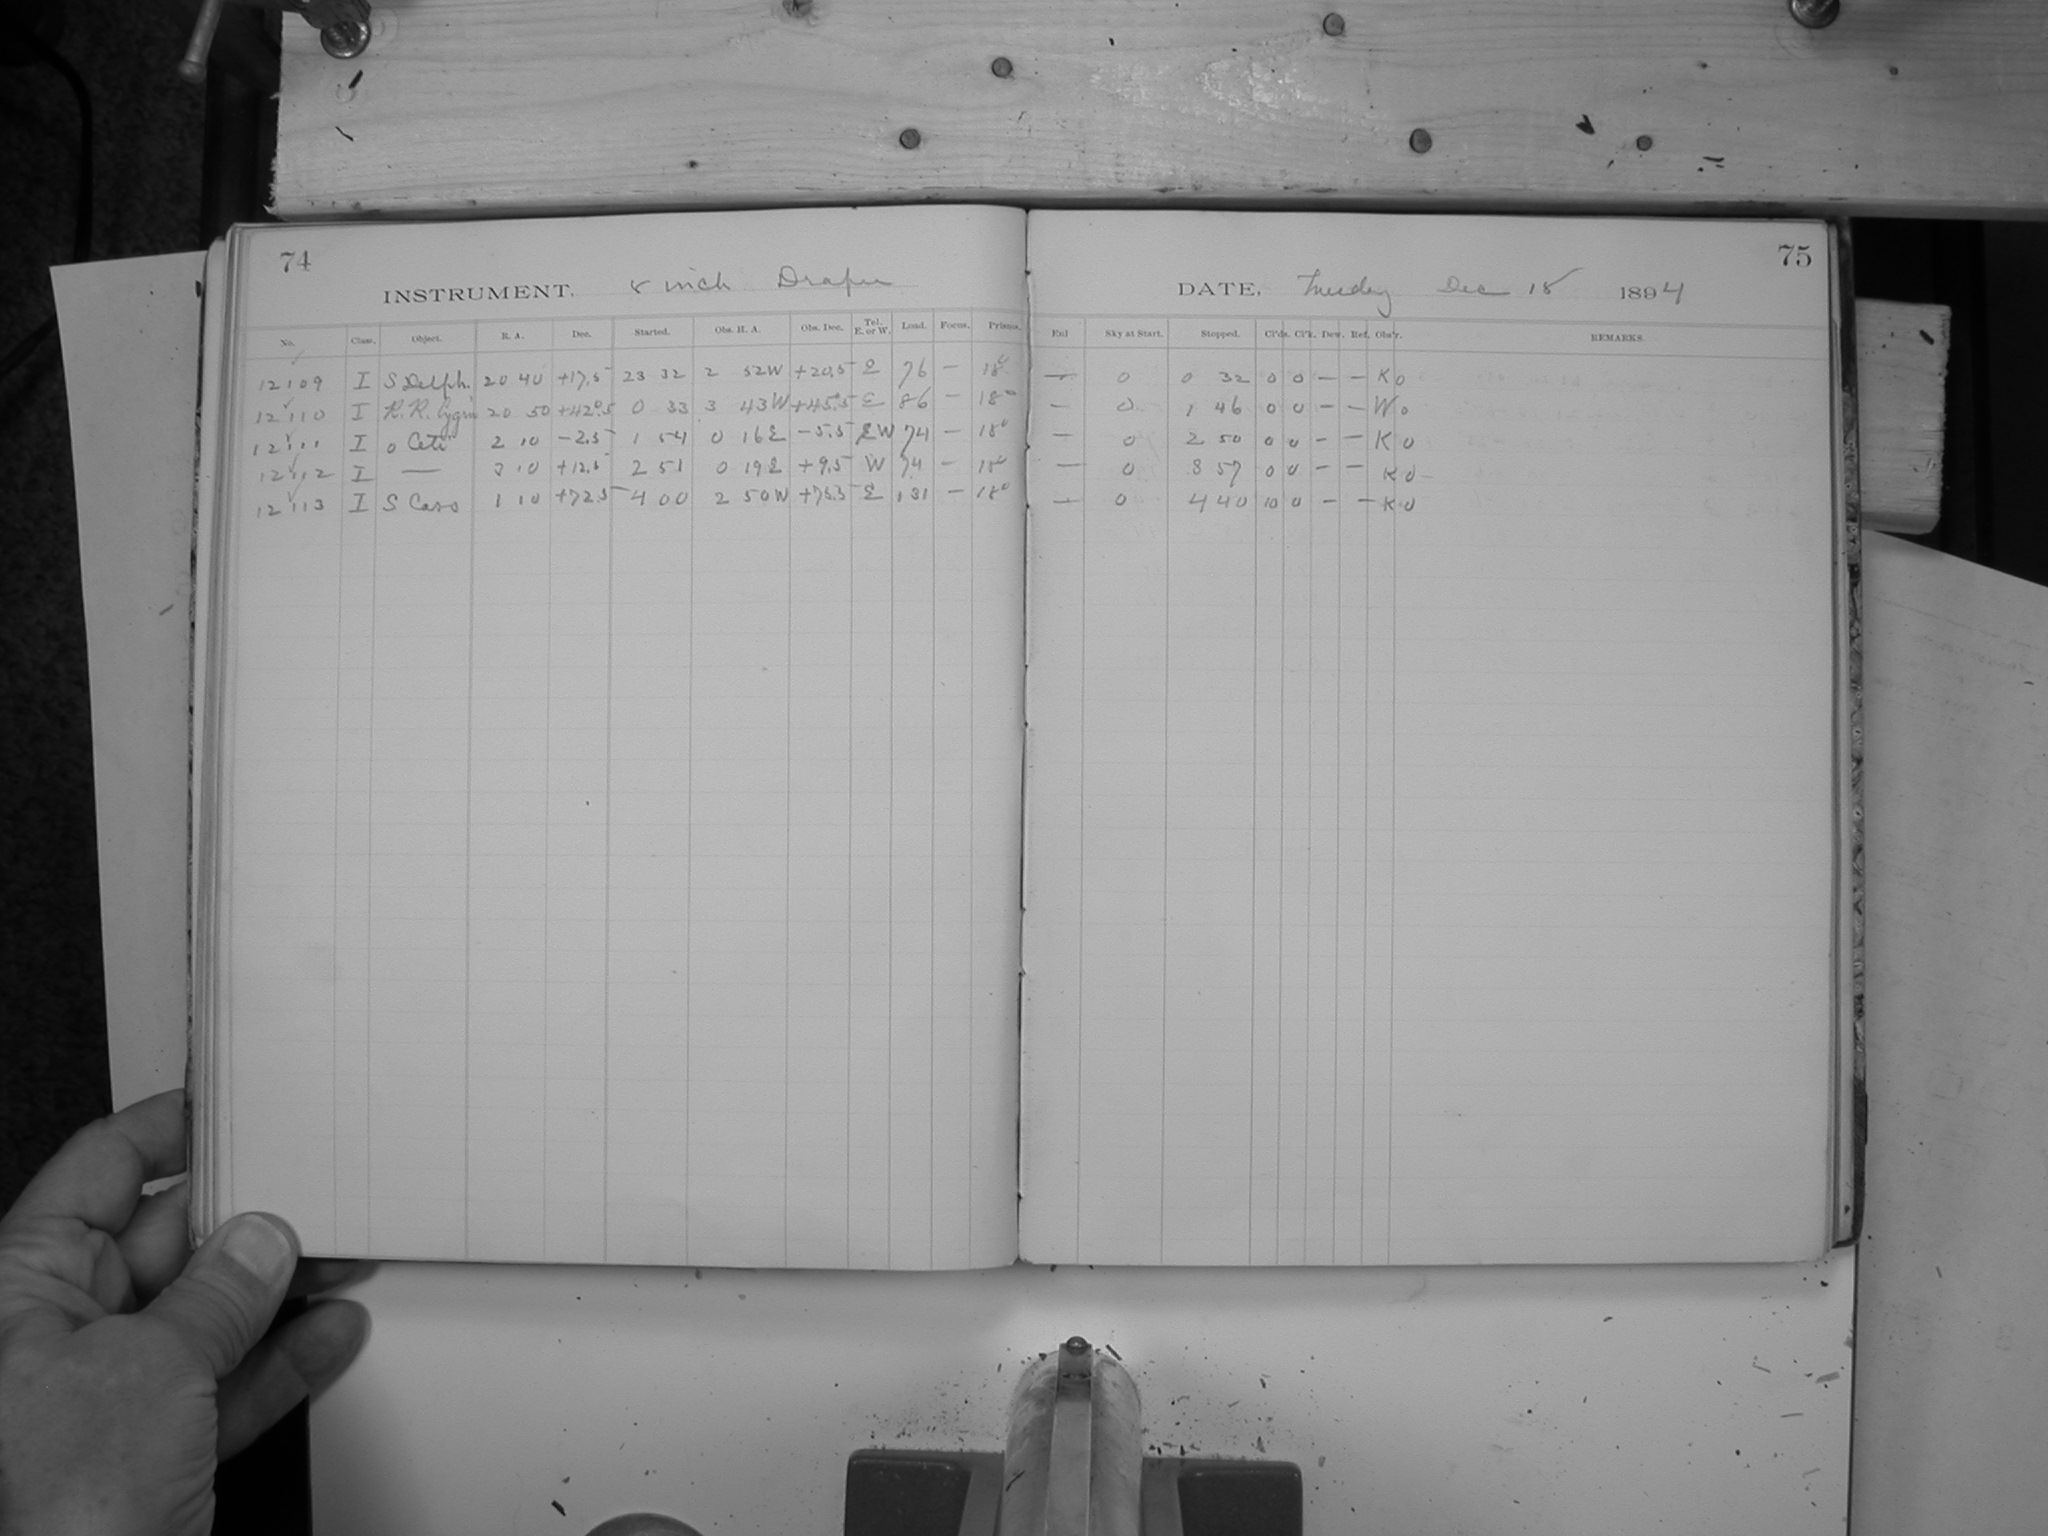 74
75
INSTRUMENT, 8 inch Draper
DATE, Tuesday Dec 18 1894
No. Class. Object. R. A. Dec. Started. Obs. H. A. Obs. Dec. Tel. E. or W. Load. Focus. Prisms. Exl Sky at Start. Stopped. Cl'ds. Cl'k. Dew. Ref. Obs'r. REMARKS.
12109 I S Delph. 20 40 +17.5 23 32 2 52W +20.5 E 76 — 18° — 0 0 32 0 0 — — K0
12110 I R.R. Cygni 20 50 +42°.5 0 33 3 43W +45.5 E 86 — 18° — 0 1 46 0 0 — — W0
12111 I o Ceti 2 10 -2.5 1 54 0 16E -5.5 EW 74 — 18° — 0 2 50 0 0 — — K0
12112 I — 3 10 +12.5 2 51 0 19E +9.5 W 74 — 18° — 0 3 57 0 0 — — K0
12113 I S Cass 1 10 +72.5 4 00 2 50W +75.5 E 131 — 18° — 0 4 40 10 0 — — K0